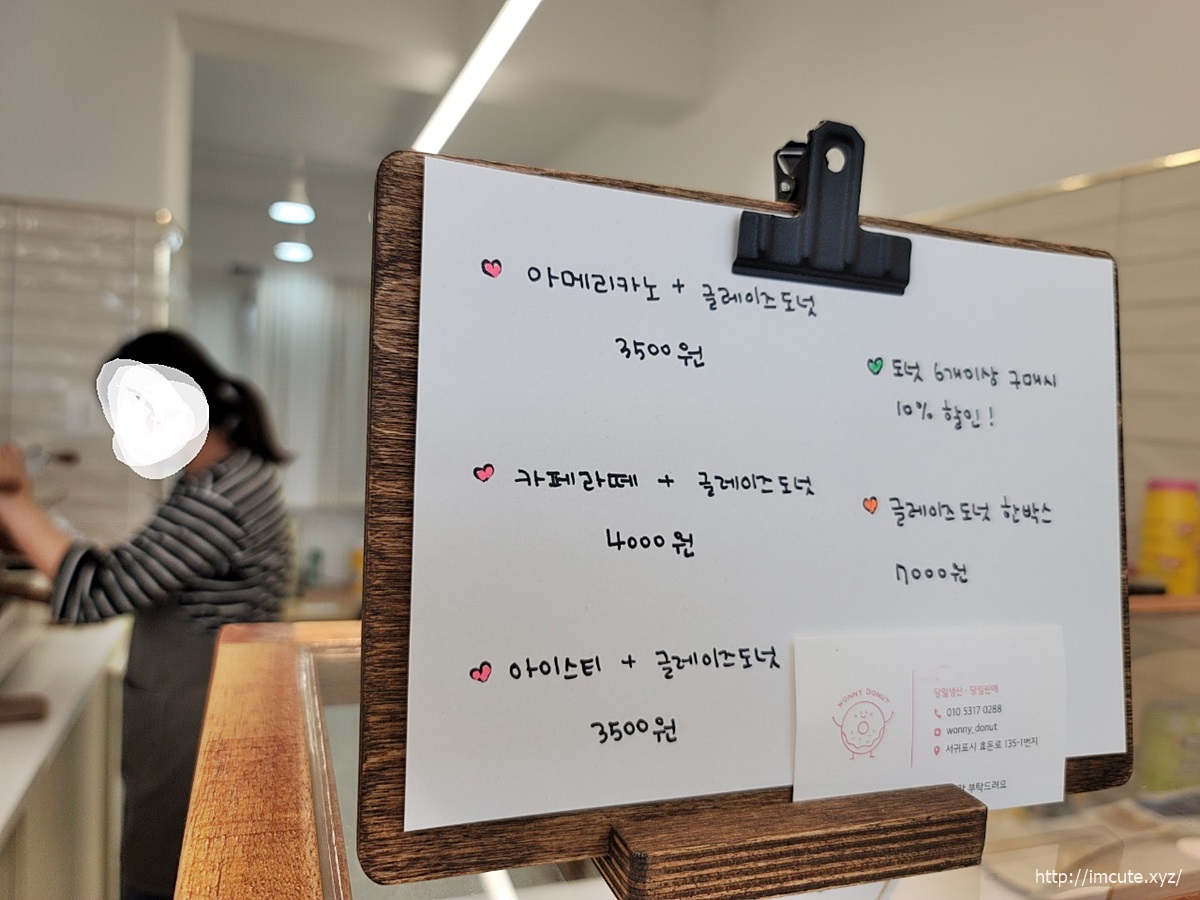 아메리카노 + 글레이즈도넛
3500원
카페라떼 + 글레이즈도넛
4000원
아이스티 + 글레이즈도넛
3500원
도넛 6개이상 구매시
10% 할인!
글레이즈도넛 한박스
7000원
WONNY DONUT
당일생산 · 당일판매
010 5317 0288
wonny_donut
서귀포시 효돈로 135-1번지
부탁드려요
http://imcute.xyz/